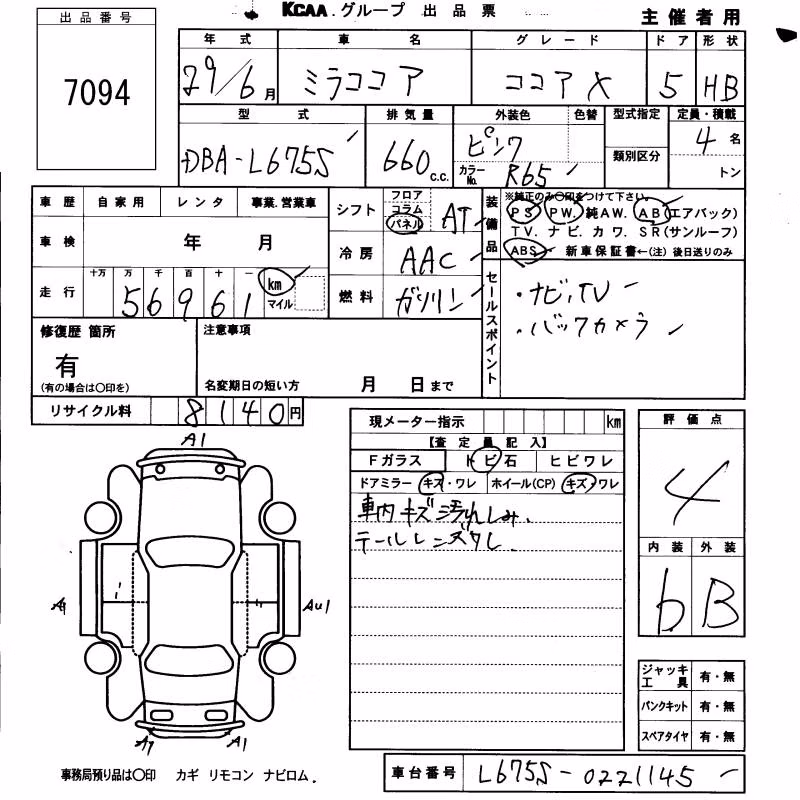 KCAA.グループ 出品票
主催者用
出品番号
7094
年式 車名 グレード ドア 形状
29/6月 ミラココア ココアX 5 HB
型式 排気量 外装色 色替 型式指定 定員・積載
DBA-L675S 660 c.c. ピンク 類別区分 4名
カラーNo. R65 トン
車歴 自家用 レンタ 事業.営業車
シフト フロア コラム パネル AT
装備品 ※純正のみ○印をつけて下さい。
PS PW. 純AW. AB(エアバック)
TV. ナビ. カワ. SR(サンルーフ)
ABS 新車保証書←(注) 後日送りのみ
車検 年 月
冷房 AAC
走行 十万 万 千 百 十 一
56961 km マイル
燃料 ガソリン
セールスポイント
・ナビ,TV
・バックカメラ
修復歴 箇所
有
(有の場合は○印を)
注意事項
名変期日の短い方 月 日まで
リサイクル料 8140円
現メーター指示 km
【査定員記入】
Fガラス トビ石 ヒビワレ
ドアミラー キズ・ワレ ホイール(CP) キズ・ワレ
車内キズ汚れしみ.
テールレンズワレ.
評価点
4
内装 外装
b B
A1
A1
AU1
A1
ジャッキ工具 有・無
パンクキット 有・無
スペアタイヤ 有・無
事務局預り品は○印 カギ リモコン ナビロム.
車台番号 L675S-0221145